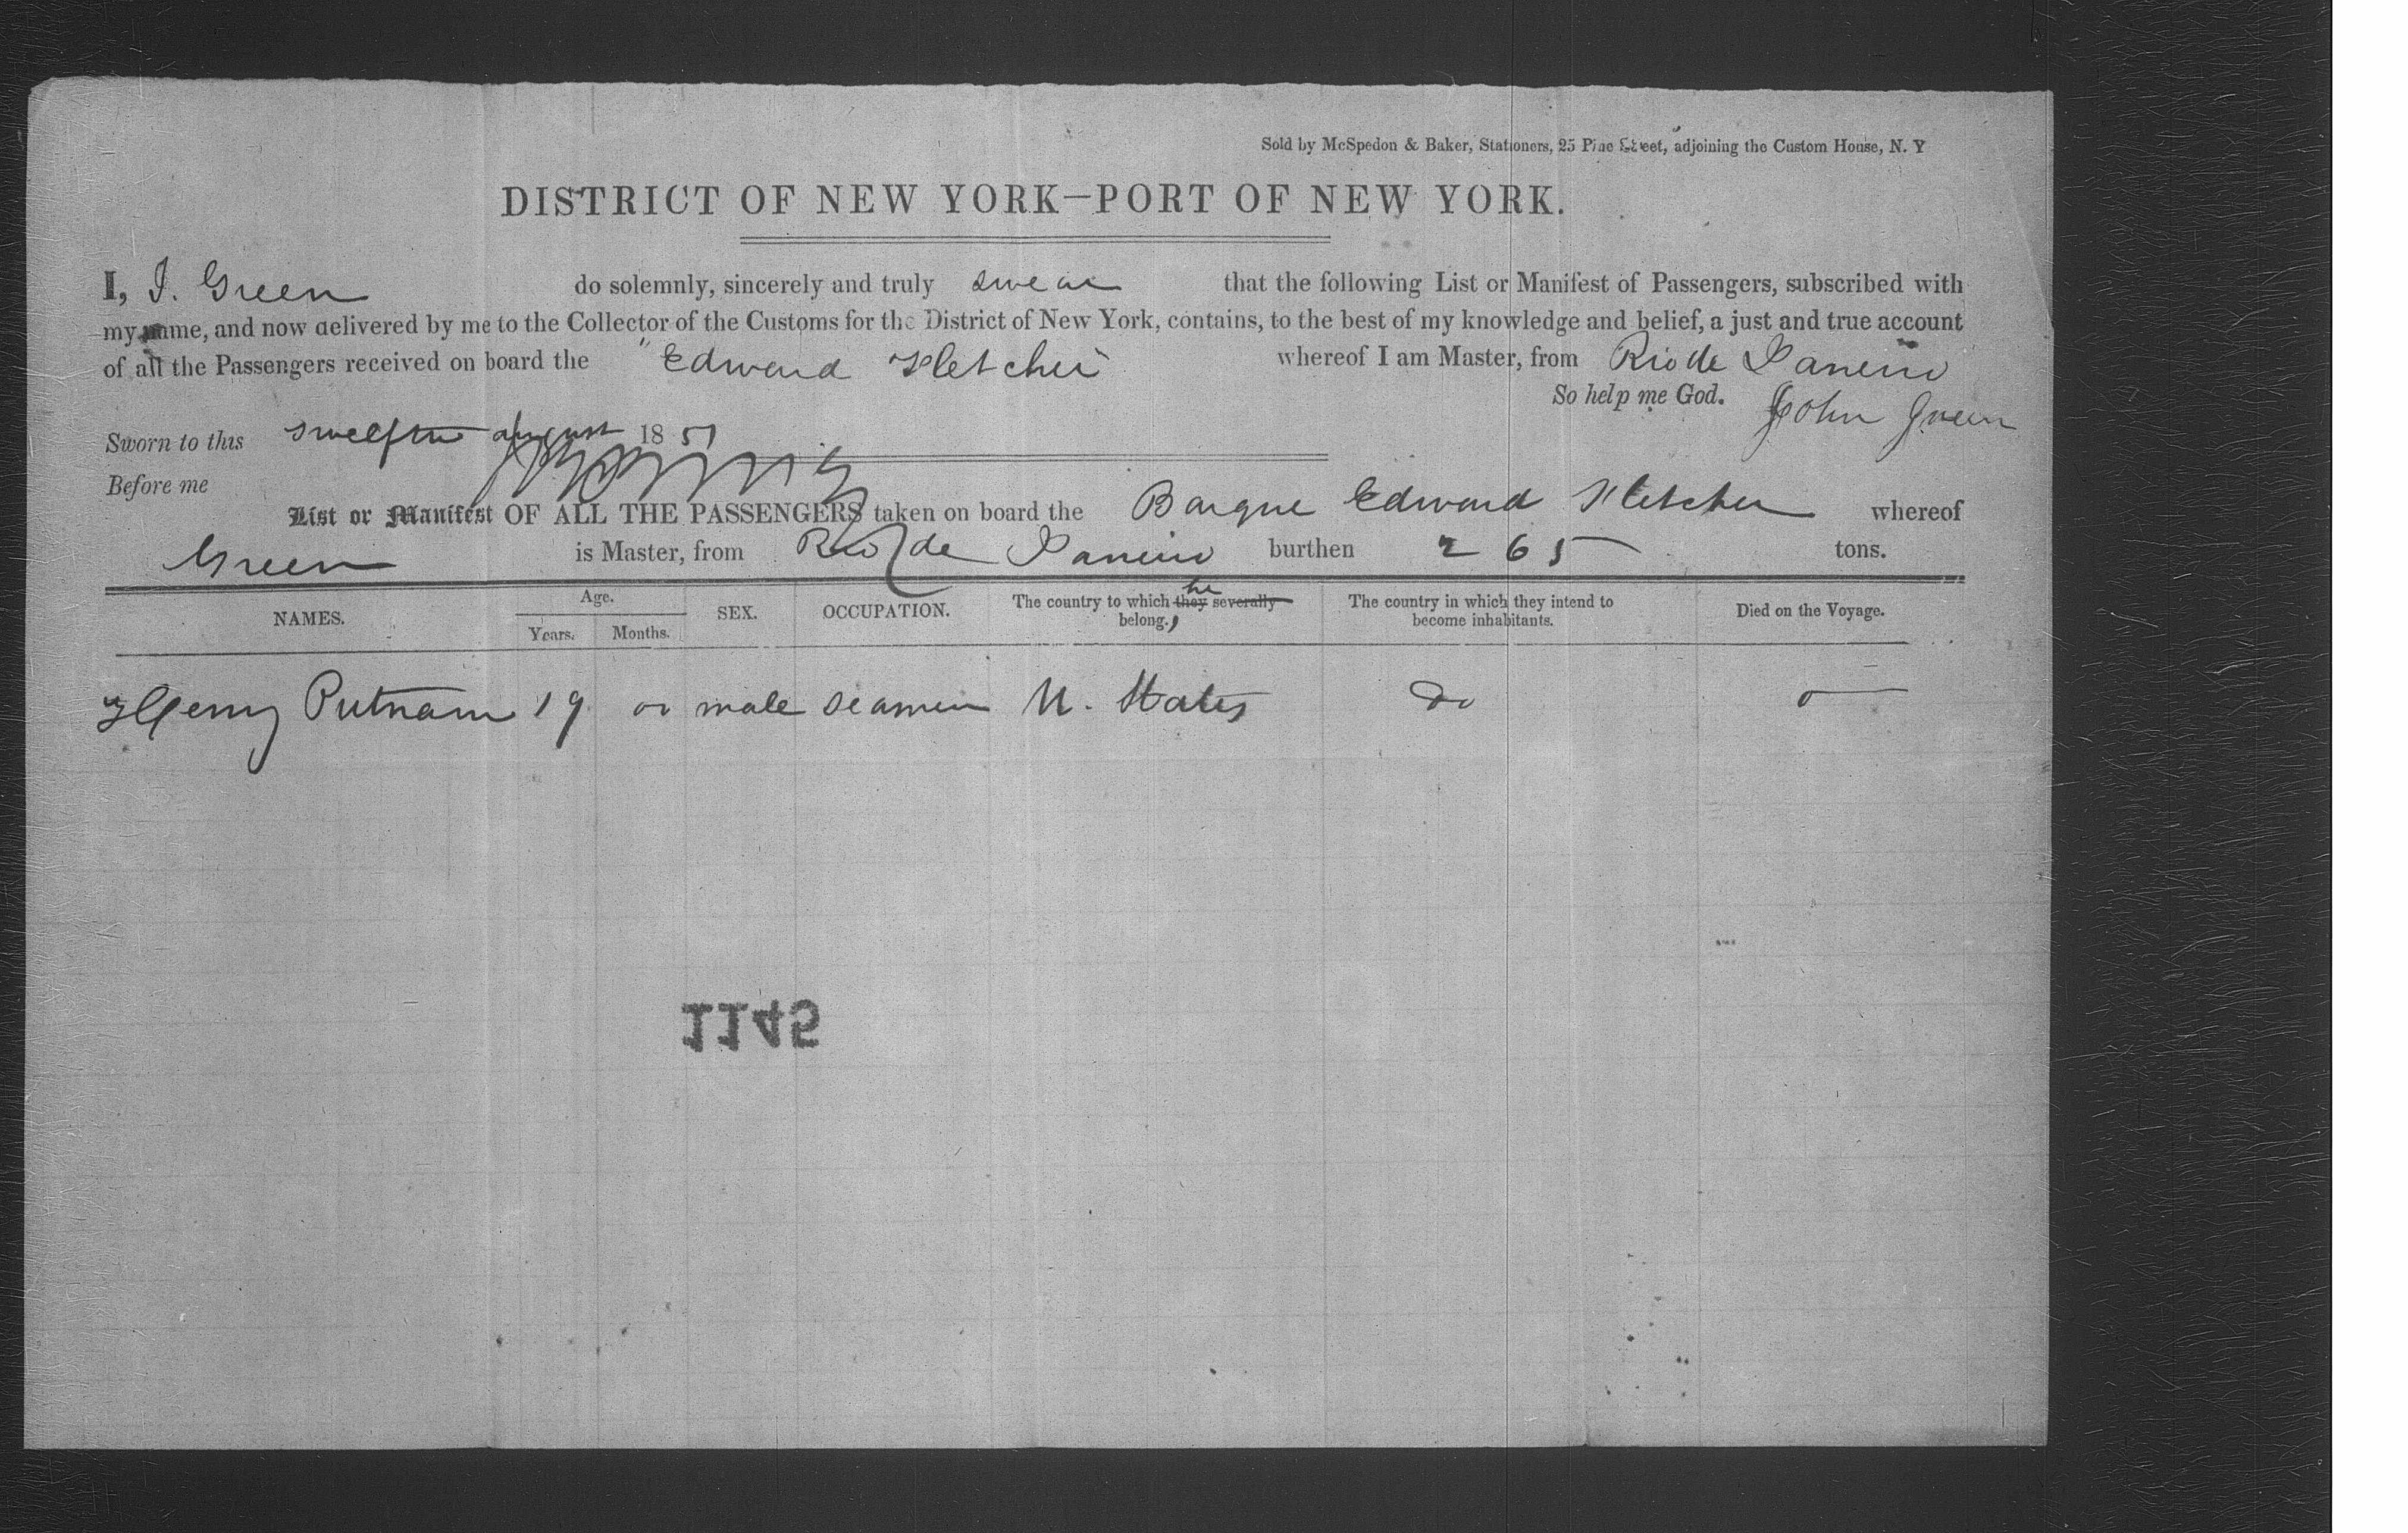 Sold by McSpedon & Baker, Stationers, 25 Pine Street, adjoining the Custom House, N. Y
DISTRICT OF NEW YORK—PORT OF NEW YORK.
I, J. Green do solemnly, sincerely and truly swear that the following List or Manifest of Passengers, subscribed with
my name, and now delivered by me to the Collector of the Customs for the District of New York, contains, to the best of my knowledge and belief, a just and true account
of all the Passengers received on board the "Edward Fletcher" whereof I am Master, from Rio de Janeiro
So help me God. John Green
Sworn to this twelfth august 1851
Before me
List or Manifest OF ALL THE PASSENGERS taken on board the Barque Edward Fletcher whereof
Green is Master, from Rio de Janeiro burthen 265 tons.
NAMES. Age. Years. Months. SEX. OCCUPATION. The country to which they he severally belong, The country in which they intend to become inhabitants. Died on the Voyage.
Henry Putnam 19 00 male seamen U. States Do 0
1145